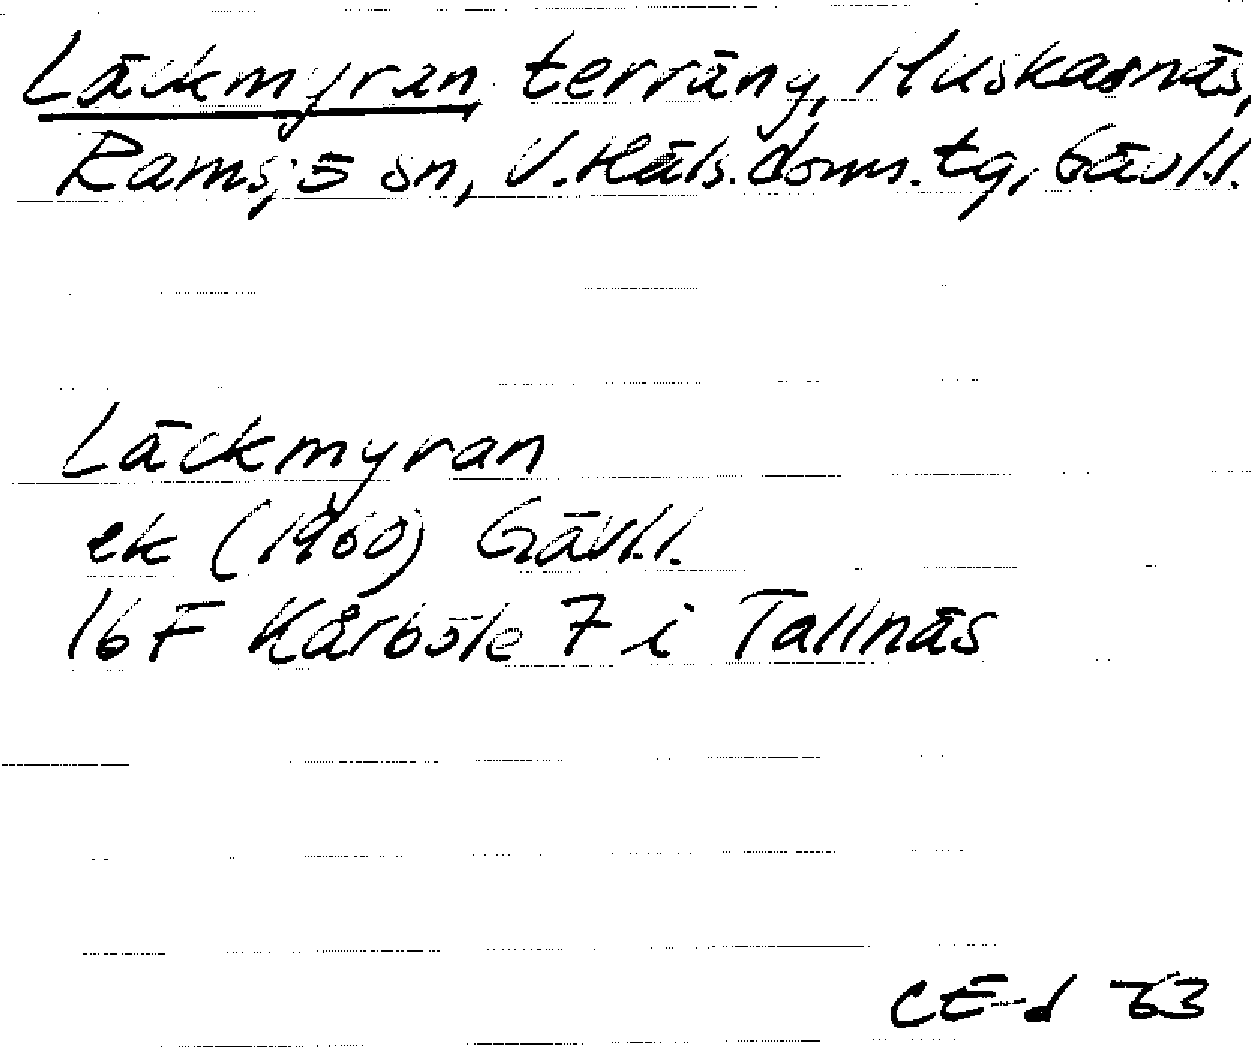 Läckmyran, terräng, Huskasnäs,
Ramsjö sn, V.Häls.doms.tg, Gävl.l.
Läckmyran
ek (1960) Gävl.l.
16 F Kårböle 7 i Tallnäs
CE-d 63